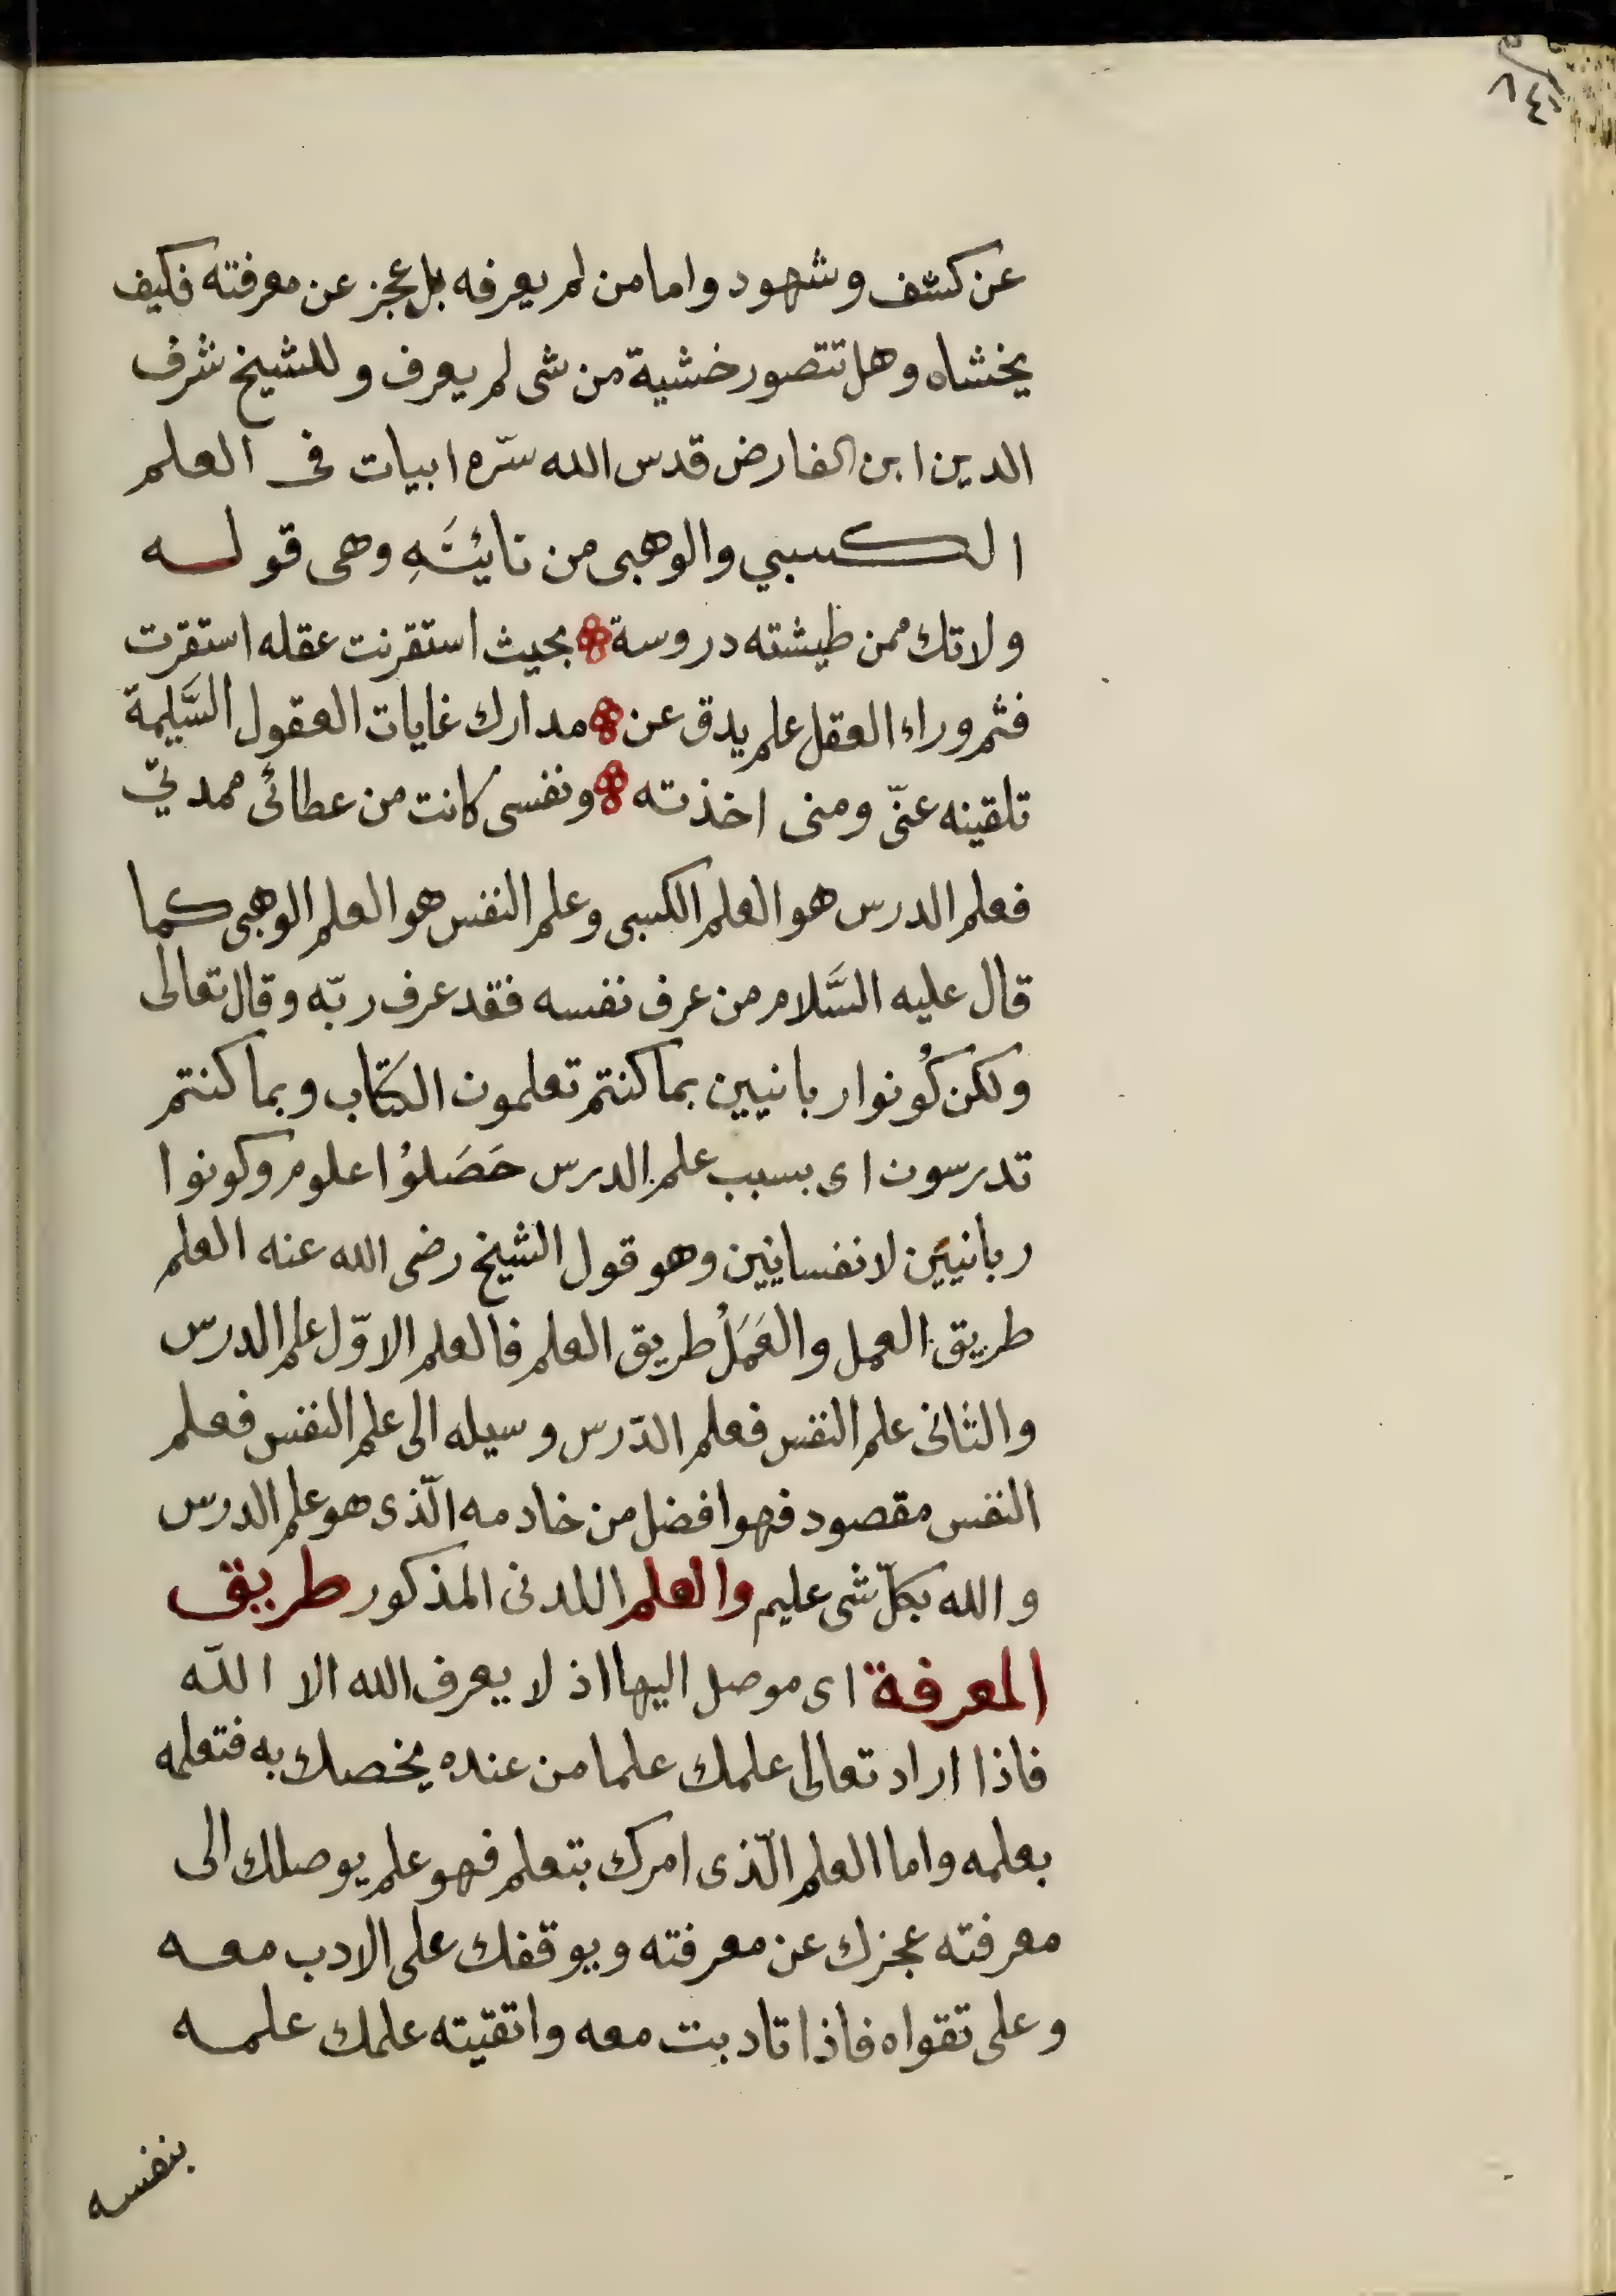 عن كشف وشهود واما من لم يعرفه بل عجز عن معرفته فكيف
يخشاه وهل تتصور خشية من شى لم يعرف وللشيخ شرف
الدين ابن الفارض قدس الله سرّه ابيات فى العلم
الكسبي والوهبى من تائيتَهِ وهى قوله
ولاتك ممن طيشته دروسة بحيث استقرنت عقله استقرت
فثم وراء العقل علم يدق عن مدارك غايات العقول السَّليمة
تلقينه عنّى ومنى اخذته ونفسى كانت من عطائى ممدتي
فعلم الدرس هو العلم الكسبى وعلم النفس هو العلم الوهبى كما
قال عليه السَّلام من عرف نفسه فقد عرف ربّه وقال تعالى
ولكن كُونوا ربانيين بما كنتم تعلمون الكتاب وبما كنتم
تدرسون اى بسبب علم الدرس حَصَلوُا علوم وكونوا
ربانيين لا نفسانيين وهو قول الشيخ رضى الله عنه العلم
طريق العمل والعَمَلُ طريق العلم فالعلم الاوّل علم الدرس
والثانى علم النفس فعلم الدّرس وسيله الى علم النفس فعلم
النفس مقصود فهو افضل من خادمه الّذى هو علم الدرس
والله بكلّ شى عليم والعلم اللدنى المذكور طريق
المعرفة اى موصل اليها اذ لا يعرف الله الا الله
فاذا اراد تعالى علمك علما من عنده يخصك به فتعلمه
بعلمه واما العلم الّذى امرك بتعلم فهو علم يوصلك الى
معرفته عجزك عن معرفته ويوقفك على الادب معه
وعلى تقواه فاذا تادبت معه واتقيته علمك علمه
بنفسه